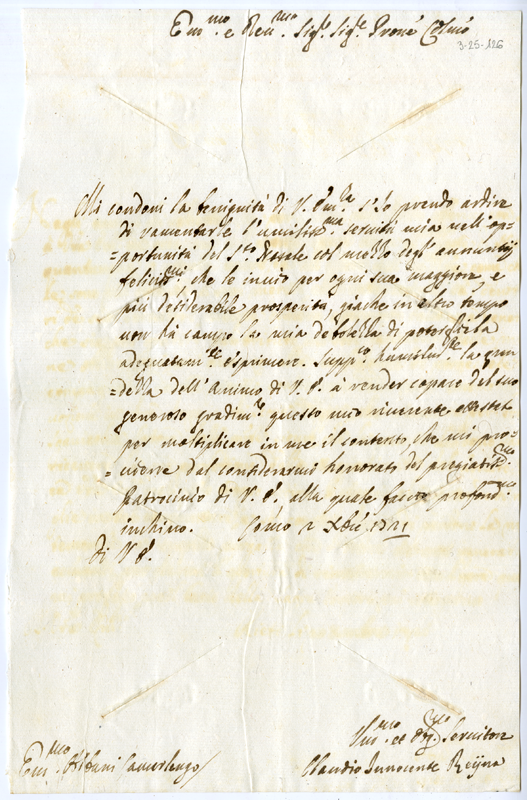 Em.mo e Rev.mo Sig.r Sig.r Prone Colmo
3-25-126
Mi condoni la benignità di V. Em.za s'Io prendo ardire
di ramentarle l'umiliss.ma servitù mia nell'op=
=portunità del S.to Natale col mezzo degl'annuntij
feliciss.mi che le invio per ogni sua maggiore, e
più desiderabile prosperità, giache in altro tempo
non hà campo la mia debolezza di potergliela
adeguatam.te esprimere. Supp.co humilm.te la gran
=dezza dell'Animo di V. E. à render capace del suo
generoso gradim.to questo mio riverente attestato
per moltiplicare in me il contento, che mi pro=
=viene dal considerarmi honorato del pregiatis.mo
Patrocinio di V. E. alla quale faccio profond.mo
inchino. Como 2 Xbre 1721
Di V. E.
Hum.mo et Servitore
Em.mo Albani Camerlengo
Claudio Innocente Reijna